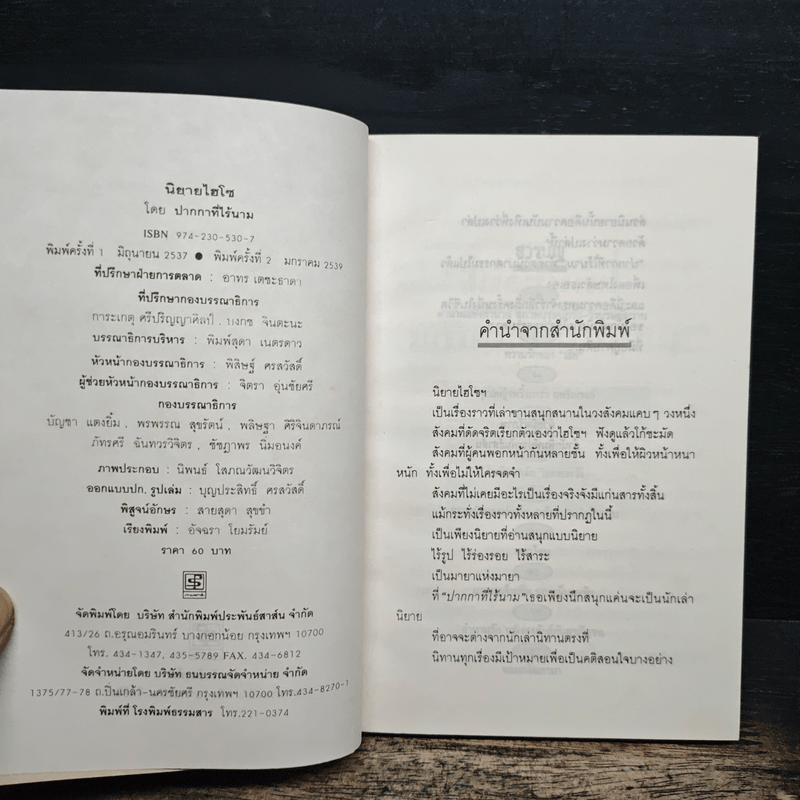 นิยายไฮโซ
โดย ปากกาที่ไร้นาม
ISBN 974-230-530-7
พิมพ์ครั้งที่ 1 มิถุนายน 2537 ● พิมพ์ครั้งที่ 2 มกราคม 2539
ที่ปรึกษาฝ่ายการตลาด : อาทร เตชะธาดา
ที่ปรึกษากองบรรณาธิการ
การะเกตุ ศรีปริญญาศิลป์ , บงกช จินตะนะ
บรรณาธิการบริหาร : พิมพ์สุดา เนตรดาว
หัวหน้ากองบรรณาธิการ : พิสิษฐ์ ศรสวัสดิ์
ผู้ช่วยหัวหน้ากองบรรณาธิการ : จิตรา อุ่นชัยศรี
กองบรรณาธิการ
บัญชา แตงยิ้ม , พรพรรณ สุขรัตน์ , พลิษฐา ศิริจินดาภรณ์
ภัทรศรี ฉันทวรวิจิตร , ชัชฎาพร นิ่มอนงค์
ภาพประกอบ : นิพนธ์ โสภณวัฒนวิจิตร
ออกแบบปก, รูปเล่ม : บุญประสิทธิ์ ศรสวัสดิ์
พิสูจน์อักษร : สายสุดา สุขขำ
เรียงพิมพ์ : อัจฉรา โยมรัมย์
ราคา 60 บาท
จัดพิมพ์โดย บริษัท สำนักพิมพ์ประพันธ์สาส์น จำกัด
413/26 ถ.อรุณอมรินทร์ บางกอกน้อย กรุงเทพฯ 10700
โทร. 434-1347, 435-5789 FAX. 434-6812
จัดจำหน่ายโดย บริษัท ธนบรรณจัดจำหน่าย จำกัด
1375/77-78 ถ.ปิ่นเกล้า-นครชัยศรี กรุงเทพฯ 10700 โทร.434-8270-1
พิมพ์ที่ โรงพิมพ์ธรรมสาร โทร.221-0374
คำนำจากสำนักพิมพ์
นิยายไฮโซฯ
เป็นเรื่องราวที่เล่าขานสนุกสนานในวงสังคมแคบ ๆ วงหนึ่ง
สังคมที่ดัดจริตเรียกตัวเองว่าไฮโซฯ ฟังดูแล้วโก้ซะมัด
สังคมที่ผู้คนพอกหน้ากันหลายชั้น ทั้งเพื่อให้ผิวหน้าหนา
หนัก ทั้งเพื่อไม่ให้ใครจดจำ
สังคมที่ไม่เคยมีอะไรเป็นเรื่องจริงจังมีแก่นสารทั้งสิ้น
แม้กระทั่งเรื่องราวทั้งหลายที่ปรากฏในนี้
เป็นเพียงนิยายที่อ่านสนุกแบบนิยาย
ไร้รูป ไร้ร่องรอย ไร้สาระ
เป็นมายาแห่งมายา
ที่ “ปากกาที่ไร้นาม” เธอเพียงนึกสนุกแค่นจะเป็นนักเล่า
นิยาย
ที่อาจจะต่างจากนักเล่านิทานตรงที่
นิทานทุกเรื่องมีเป้าหมายเพื่อเป็นคติสอนใจบางอย่าง